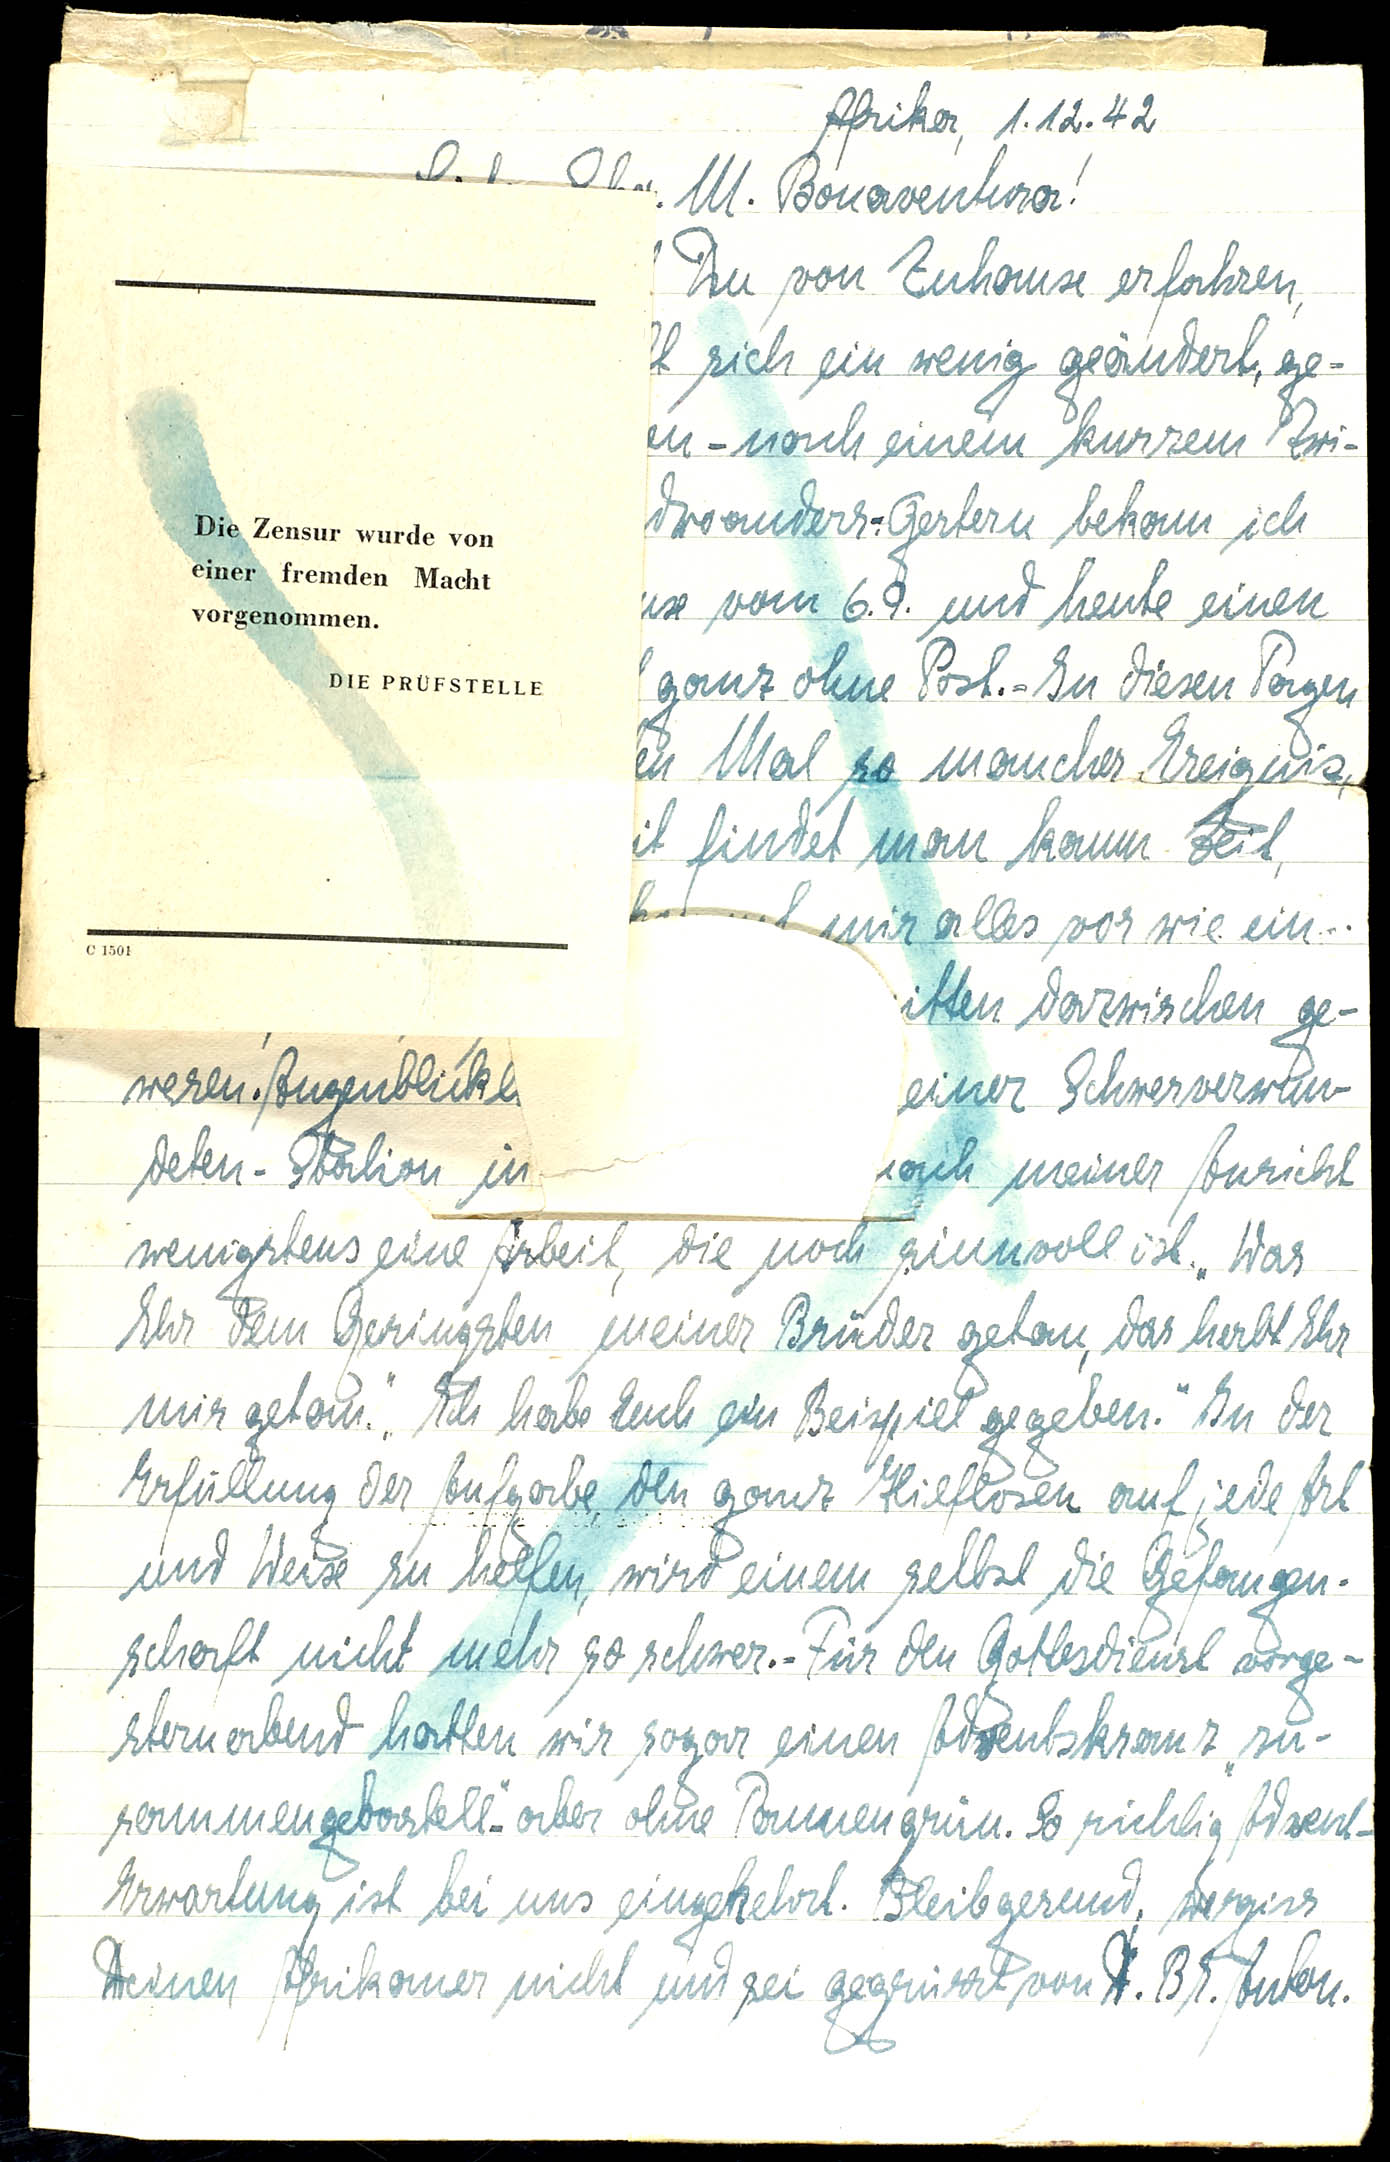 Afrika, 1.12.42
M. Bonaventura!
Du von Zuhause erfahren,
sich ein wenig geändert, ge-
en - nach einem kurzem Zwi-
dwoanders = Gestern bekam ich
use vom 6.9. und heute einen
ganz ohne Post. = In diesen Tagen
en Mal so mancher Ereignis,
it findet man kaum Zeit,
mir alles vor wie ein..
itten dazwischen ge-
wesen. Augenblickl
einer Schwerverwun-
deten - Station in
nach meiner Ansicht
wenigstens eine Arbeit, die noch sinnvoll ist. „Was
Ihr dem Geringsten meiner Brüder getan, das habt Ihr
mir getan." „Ich habe Euch ein Beispiel gegeben." In der
Erfüllung der Aufgabe den ganz Hilflosen auf jede Art
und Weise zu helfen, wird einem selbst die Gefangen-
schaft nicht mehr so schwer. = Für den Gottesdienst vorge-
sternabend hatten wir sogar einen Adventskranz „zu-
sammengebastelt" - aber ohne Tannengrün. So richtig Advent-
Erwartung ist bei uns eingekehrt. Bleib gesund, vergiss
Deinen Afrikaner nicht und sei gegrüsst von D. Br. Anton.
Die Zensur wurde von
einer fremden Macht
vorgenommen.
DIE PRÜFSTELLE
C 1501